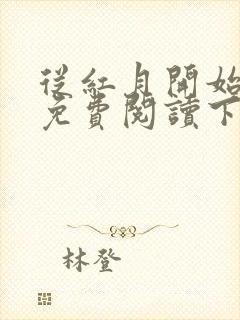 從紅月開始
免費閱讀下
林登